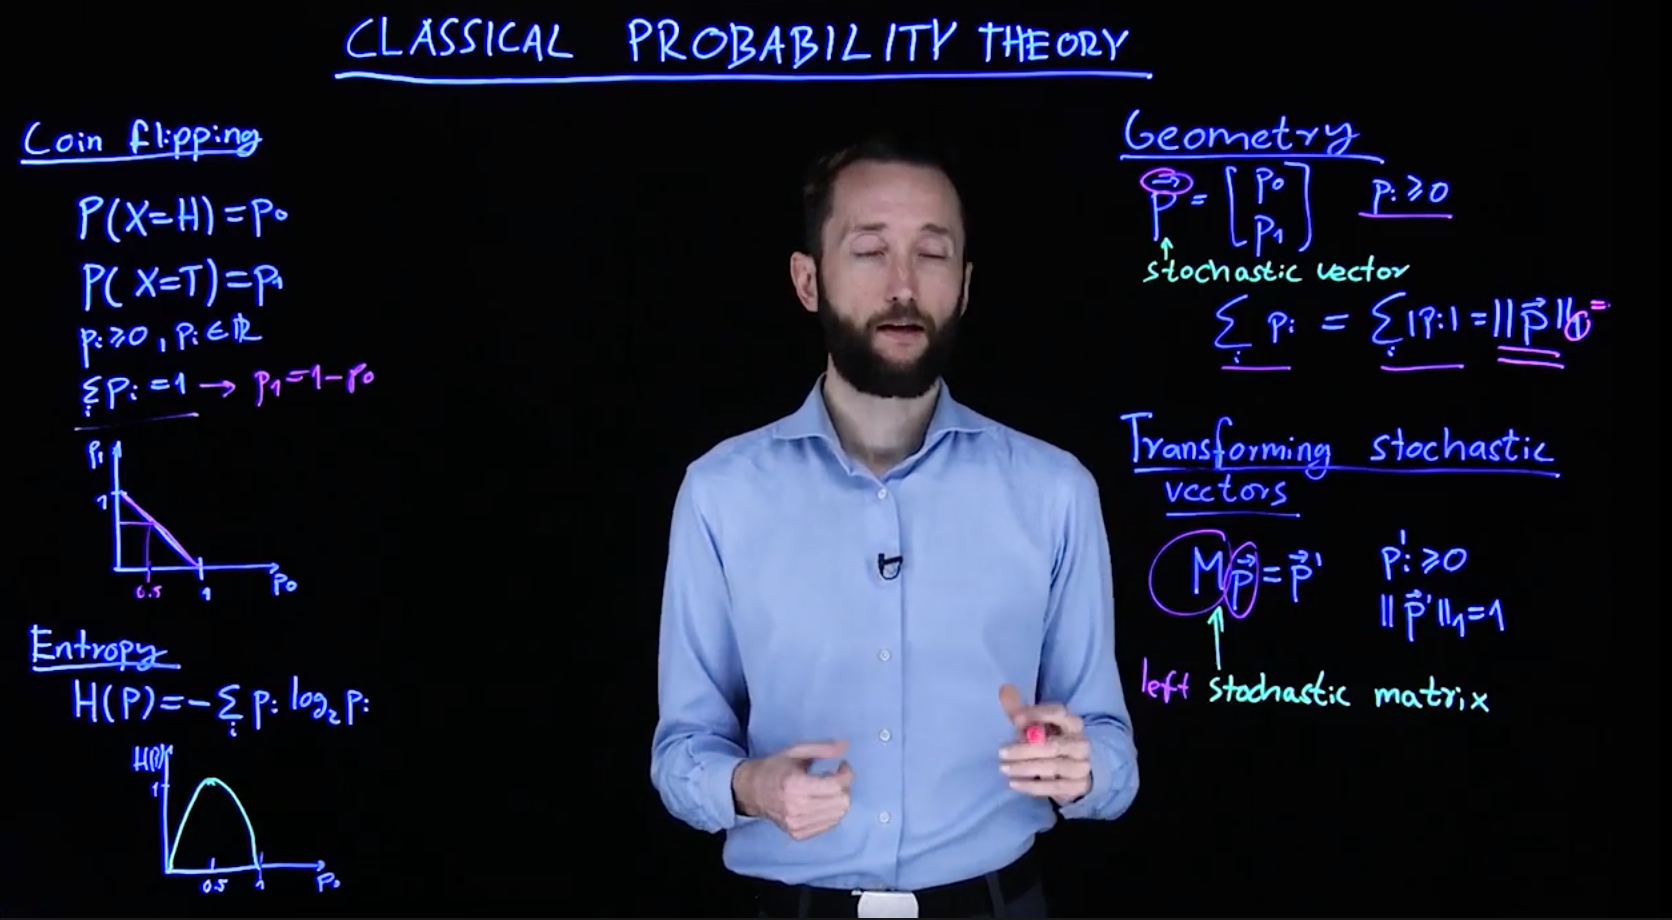 CLASSICAL PROBABILITY THEORY
Coin flipping
P(X=H)=p₀
P(X=T)=p₁
pᵢ≥0, pᵢ∈ℝ
∑ᵢ pᵢ=1 → p₁=1-p₀
p₁
1
0.5 1 p₀
Entropy
H(P)=-∑ᵢ pᵢ log₂ pᵢ
H(P)
1
0.5 1 p₀
Geometry
p⃗ = [p₀ p₁] pᵢ≥0
↑
stochastic vector
∑ᵢ pᵢ = ∑ᵢ |pᵢ| = ||p⃗||₁ =
Transforming stochastic
vectors
M p⃗ = p⃗' p'ᵢ≥0
||p⃗'||₁=1
↑
left stochastic matrix